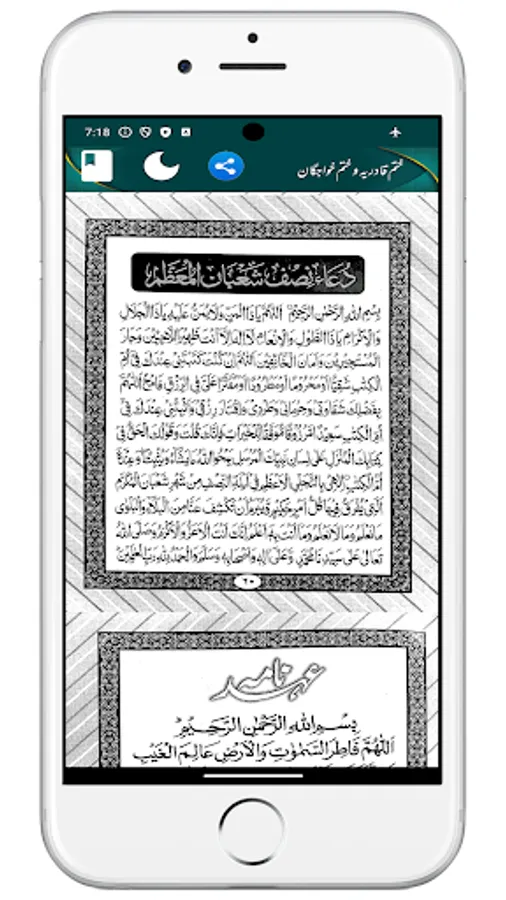 7:18
ختم قادریہ و ختم خواجگان
دُعَاءِ نِصْف شَعْبَانُ الْمُعَظَّم
بِسْمِ اللهِ الرَّحْمٰنِ الرَّحِيْمِ اَللّٰهُمَّ يَا ذَا الْمَنِّ وَلَا يُمَنُّ عَلَيْهِ يَا ذَا الْجَلَالِ
وَالْاِكْرَامِ يَا ذَا الطَّوْلِ وَالْاِنْعَامِ لَا اِلٰهَ اِلَّا اَنْتَ ظَهْرُ اللَّاجِيْنَ وَجَارُ
الْمُسْتَجِيْرِيْنَ وَاَمَانُ الْخَائِفِيْنَ اَللّٰهُمَّ اِنْ كُنْتَ كَتَبْتَنِيْ عِنْدَكَ فِيْ اُمِّ
الْكِتٰبِ شَقِيًّا اَوْ مَحْرُوْمًا اَوْ مَطْرُوْدًا اَوْ مُقَتَّرًا عَلَيَّ فِي الرِّزْقِ فَامْحُ اللّٰهُمَّ
بِفَضْلِكَ شَقَاوَتِيْ وَحِرْمَانِيْ وَطَرْدِيْ وَاقْتِتَارَ رِزْقِيْ وَاَثْبِتْنِيْ عِنْدَكَ فِيْ
اُمِّ الْكِتٰبِ سَعِيْدًا مَّرْزُوْقًا مُّوَفَّقًا لِّلْخَيْرَاتِ فَاِنَّكَ قُلْتَ وَقَوْلُكَ الْحَقُّ فِيْ
كِتَابِكَ الْمُنَزَّلِ عَلٰى لِسَانِ نَبِيِّكَ الْمُرْسَلِ يَمْحُو اللهُ مَا يَشَاءُ وَيُثْبِتُ وَعِنْدَهٗ
اُمُّ الْكِتٰبِ اِلٰهِيْ بِالتَّجَلِّي الْاَعْظَمِ فِيْ لَيْلَةِ النِّصْفِ مِنْ شَهْرِ شَعْبَانَ الْمُكَرَّمِ
الَّتِيْ يُفْرَقُ فِيْهَا كُلُّ اَمْرٍ حَكِيْمٍ وَّيُبْرَمُ اَنْ تَكْشِفَ عَنَّا مِنَ الْبَلَاءِ وَالْبَلْوَاءِ
مَا نَعْلَمُ وَمَا لَا نَعْلَمُ وَمَا اَنْتَ بِهٖ اَعْلَمُ اِنَّكَ اَنْتَ الْاَعَزُّ وَالْاَكْرَمُ وَصَلَّى اللهُ
تَعَالٰى عَلٰى سَيِّدِنَا مُحَمَّدٍ وَّعَلٰى اٰلِهٖ وَاَصْحَابِهٖ وَسَلَّمَ وَالْحَمْدُ لِلّٰهِ رَبِّ الْعٰلَمِيْنَ
عہد نامہ
بِسْمِ اللهِ الرَّحْمٰنِ الرَّحِيْمِ
اَللّٰهُمَّ فَاطِرَ السَّمٰوٰتِ وَالْاَرْضِ عَالِمَ الْغَيْبِ